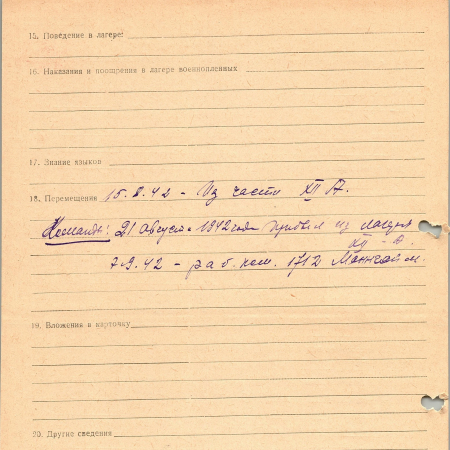 15. Поведение в лагере:
16. Наказания и поощрения в лагере военнопленных
17. Знание языков
18. Перемещения 15.8.42 - Из части XII А.
Команды: 21 августа 1942 года прибыл из лагеря
XII - А.
7.9.42 - раб. ком. 1712 Маннгейм.
19. Вложения в карточку
20. Другие сведения